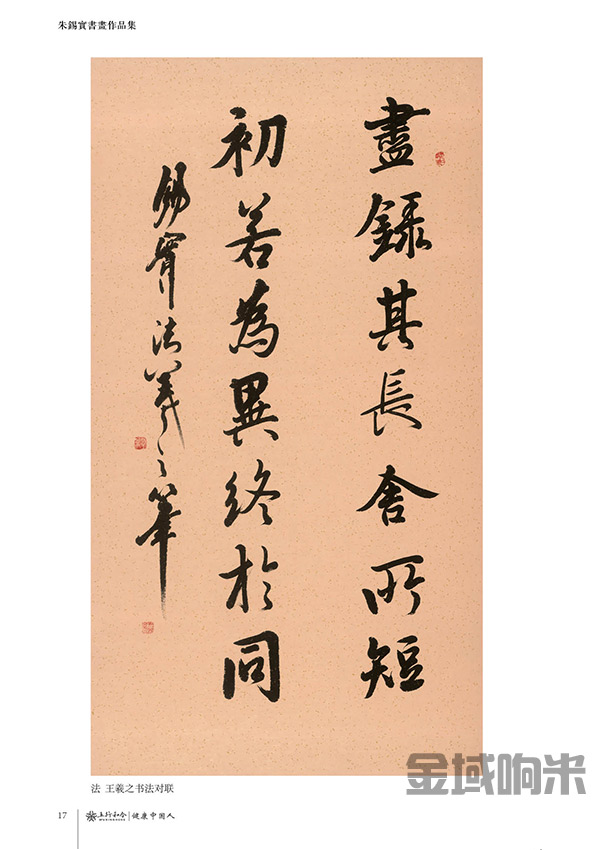 朱錫實書畫作品集
盡錄其長舍所短
初若為異終於同
錫實法羲之筆
法 王羲之书法对联
17
五行和合 健康中国人
金域响米